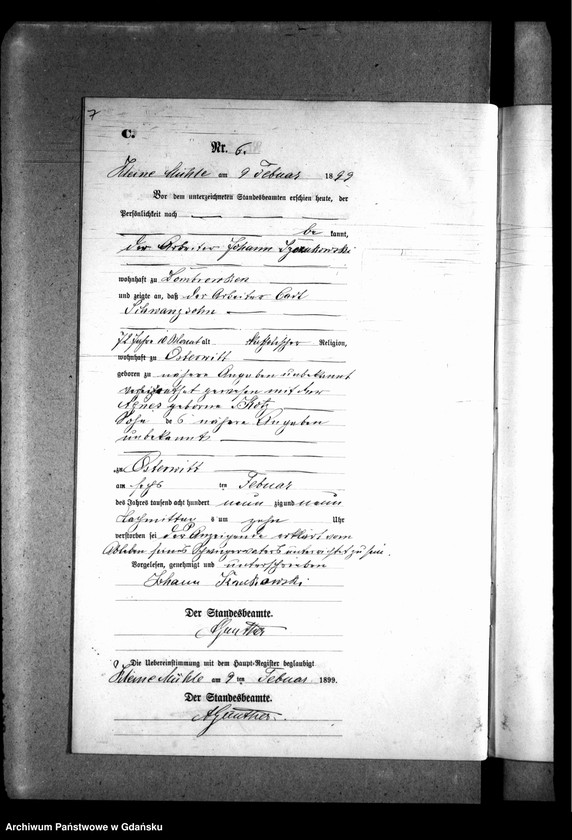 7
C.
Nr. 6.
Kleine Mühle am 9 Februar 1899
Vor dem unterzeichneten Standesbeamten erschien heute, der
Persönlichkeit nach
be kannt,
der Arbeiter Johann
wohnhaft zu
und zeigte an, daß der Arbeiter Carl
Schwanzsohn
72 Jahre 10 Monat alt Religion,
wohnhaft zu Osterwitt
geboren zu nähere Angaben unbekannt
verheirathet gewesen mit der
Agnes geborne
Sohn des nähere Angaben
unbekannt
zu Osterwitt
am sechs ten Februar
des Jahres tausend acht hundert neun zig und neun
Nachmittags um zehn Uhr
verstorben sei der Anzeigende erklärt vom
Ableben seines Schwiegervaters unterrichtet zu sein.
Vorgelesen, genehmigt und unterschrieben
Johann
Der Standesbeamte.
Günther
Die Uebereinstimmung mit dem Haupt-Register beglaubigt
Kleine Mühle am 9 ten Februar 1899.
Der Standesbeamte.
AGünther.
Archiwum Państwowe w Gdańsku